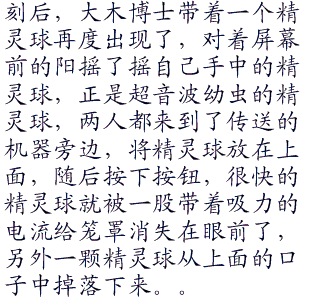 刻后，大木博士带着一个精
灵球再度出现了，对着屏幕
前的阳摇了摇自己手中的精
灵球，正是超音波幼虫的精
灵球，两人都来到了传送的
机器旁边，将精灵球放在上
面，随后按下按钮，很快的
精灵球就被一股带着吸力的
电流给笼罩消失在眼前了，
另外一颗精灵球从上面的口
子中掉落下来。。